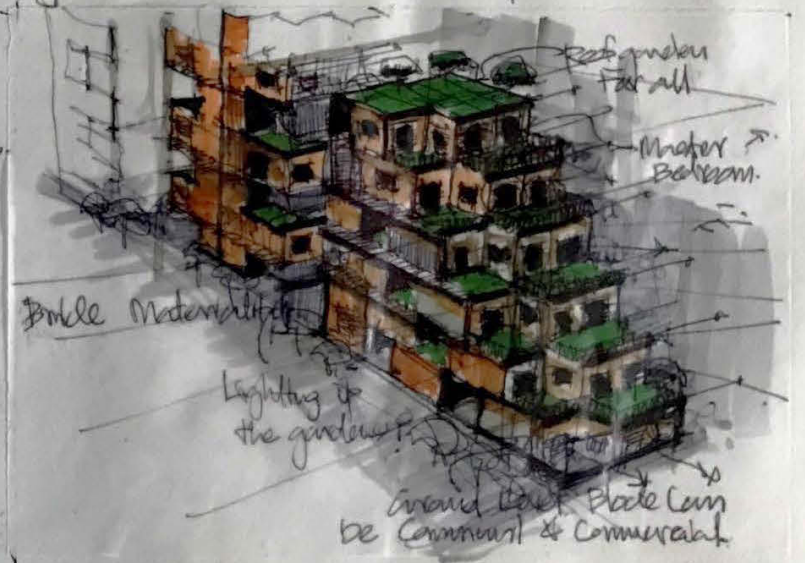 Roof garden
For all
Master
Bedroom.
Materiality
Lighting up
the garden
Ground Level Block Can
be Communal & Commercial